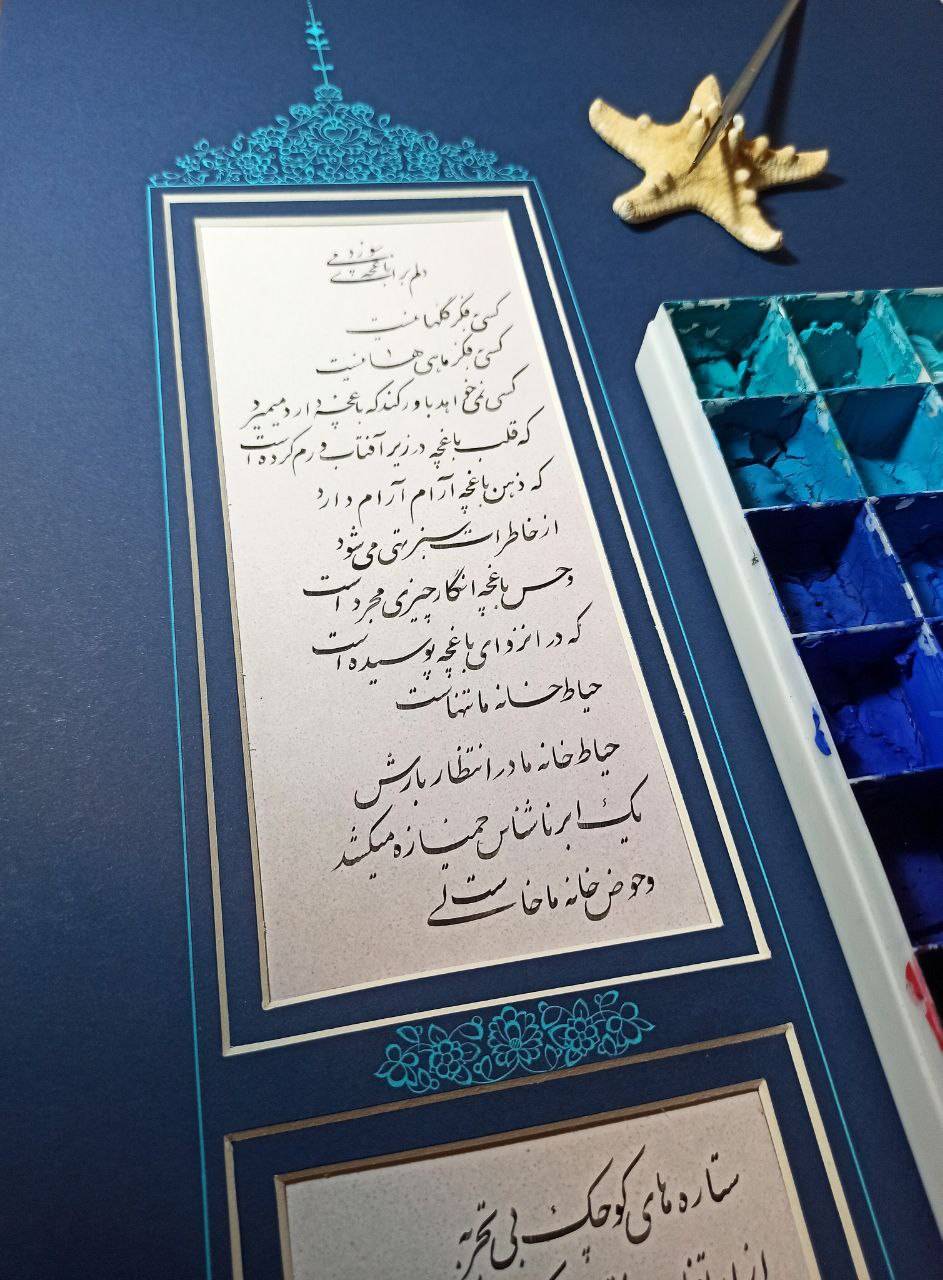 دلم برای باغچه می سوزد
کسی بفکر گلها نیست
کسی بفکر ماهی ها نیست
کسی نمی خواهد باور کند که باغچه دارد میمیرد
که قلب باغچه در زیر آفتاب ورم کرده است
که ذهن باغچه آرام آرام دارد
از خاطرات سبز تهی می شود
و حس باغچه انگار چیزی مجرد است
که در انزوای باغچه پوسیده است
حیاط خانه ما تنهاست
حیاط خانه ما در انتظار بارش
یک ابر ناشناس خمیازه میکشد
و حوض خانه ما خالی ست
ستاره های کوچک بی تجربه